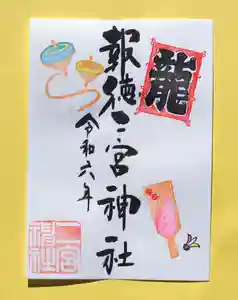 龍
報徳二宮神社
令和六年
二宮神社